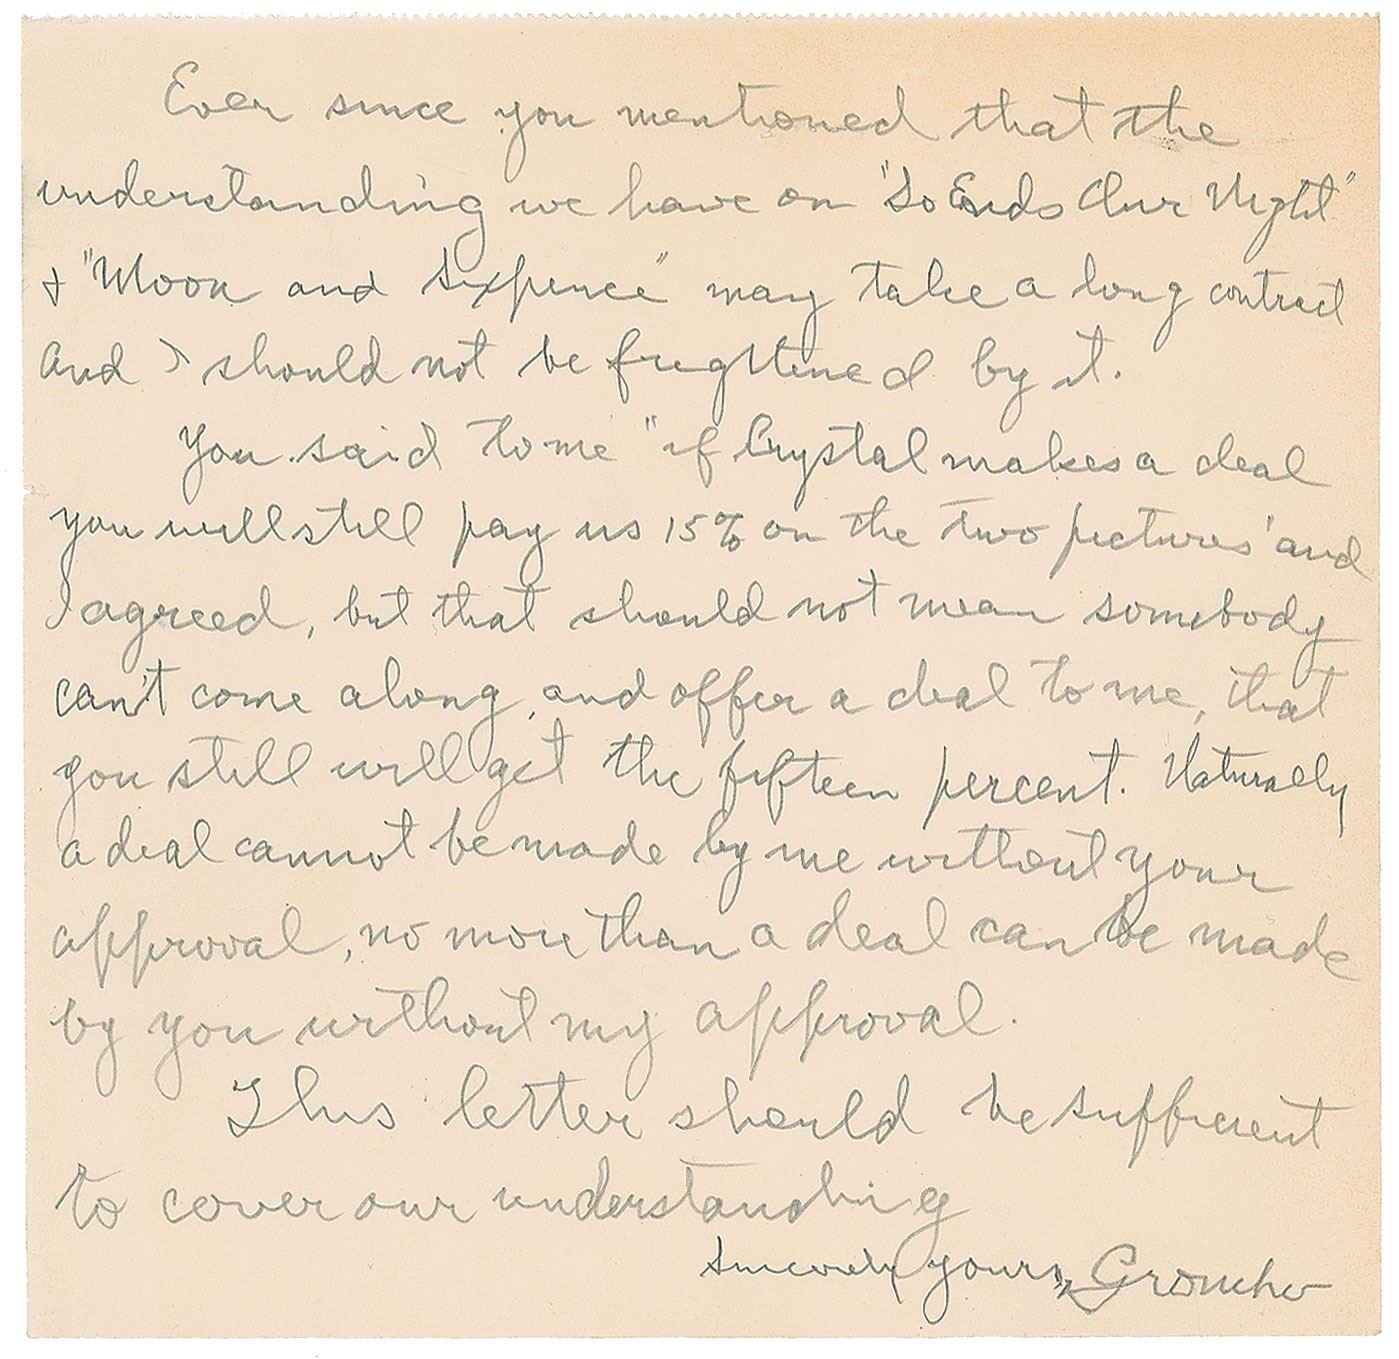 Ever since you mentioned that the
understanding we have on "So Ends Our Night"
& "Moon and Sixpence" may take a long contract
And I should not be frightened by it.
You said to me "if Crystal makes a deal
you will still pay us 15% on the two pictures' and
I agreed, but that should not mean somebody
can't come along, and offer a deal to me, that
you still will get the fifteen percent. Naturally
a deal cannot be made by me without your
approval, no more than a deal can be made
by you without my approval.
This letter should be sufficient
to cover our understanding
Sincerely yours, Groucho